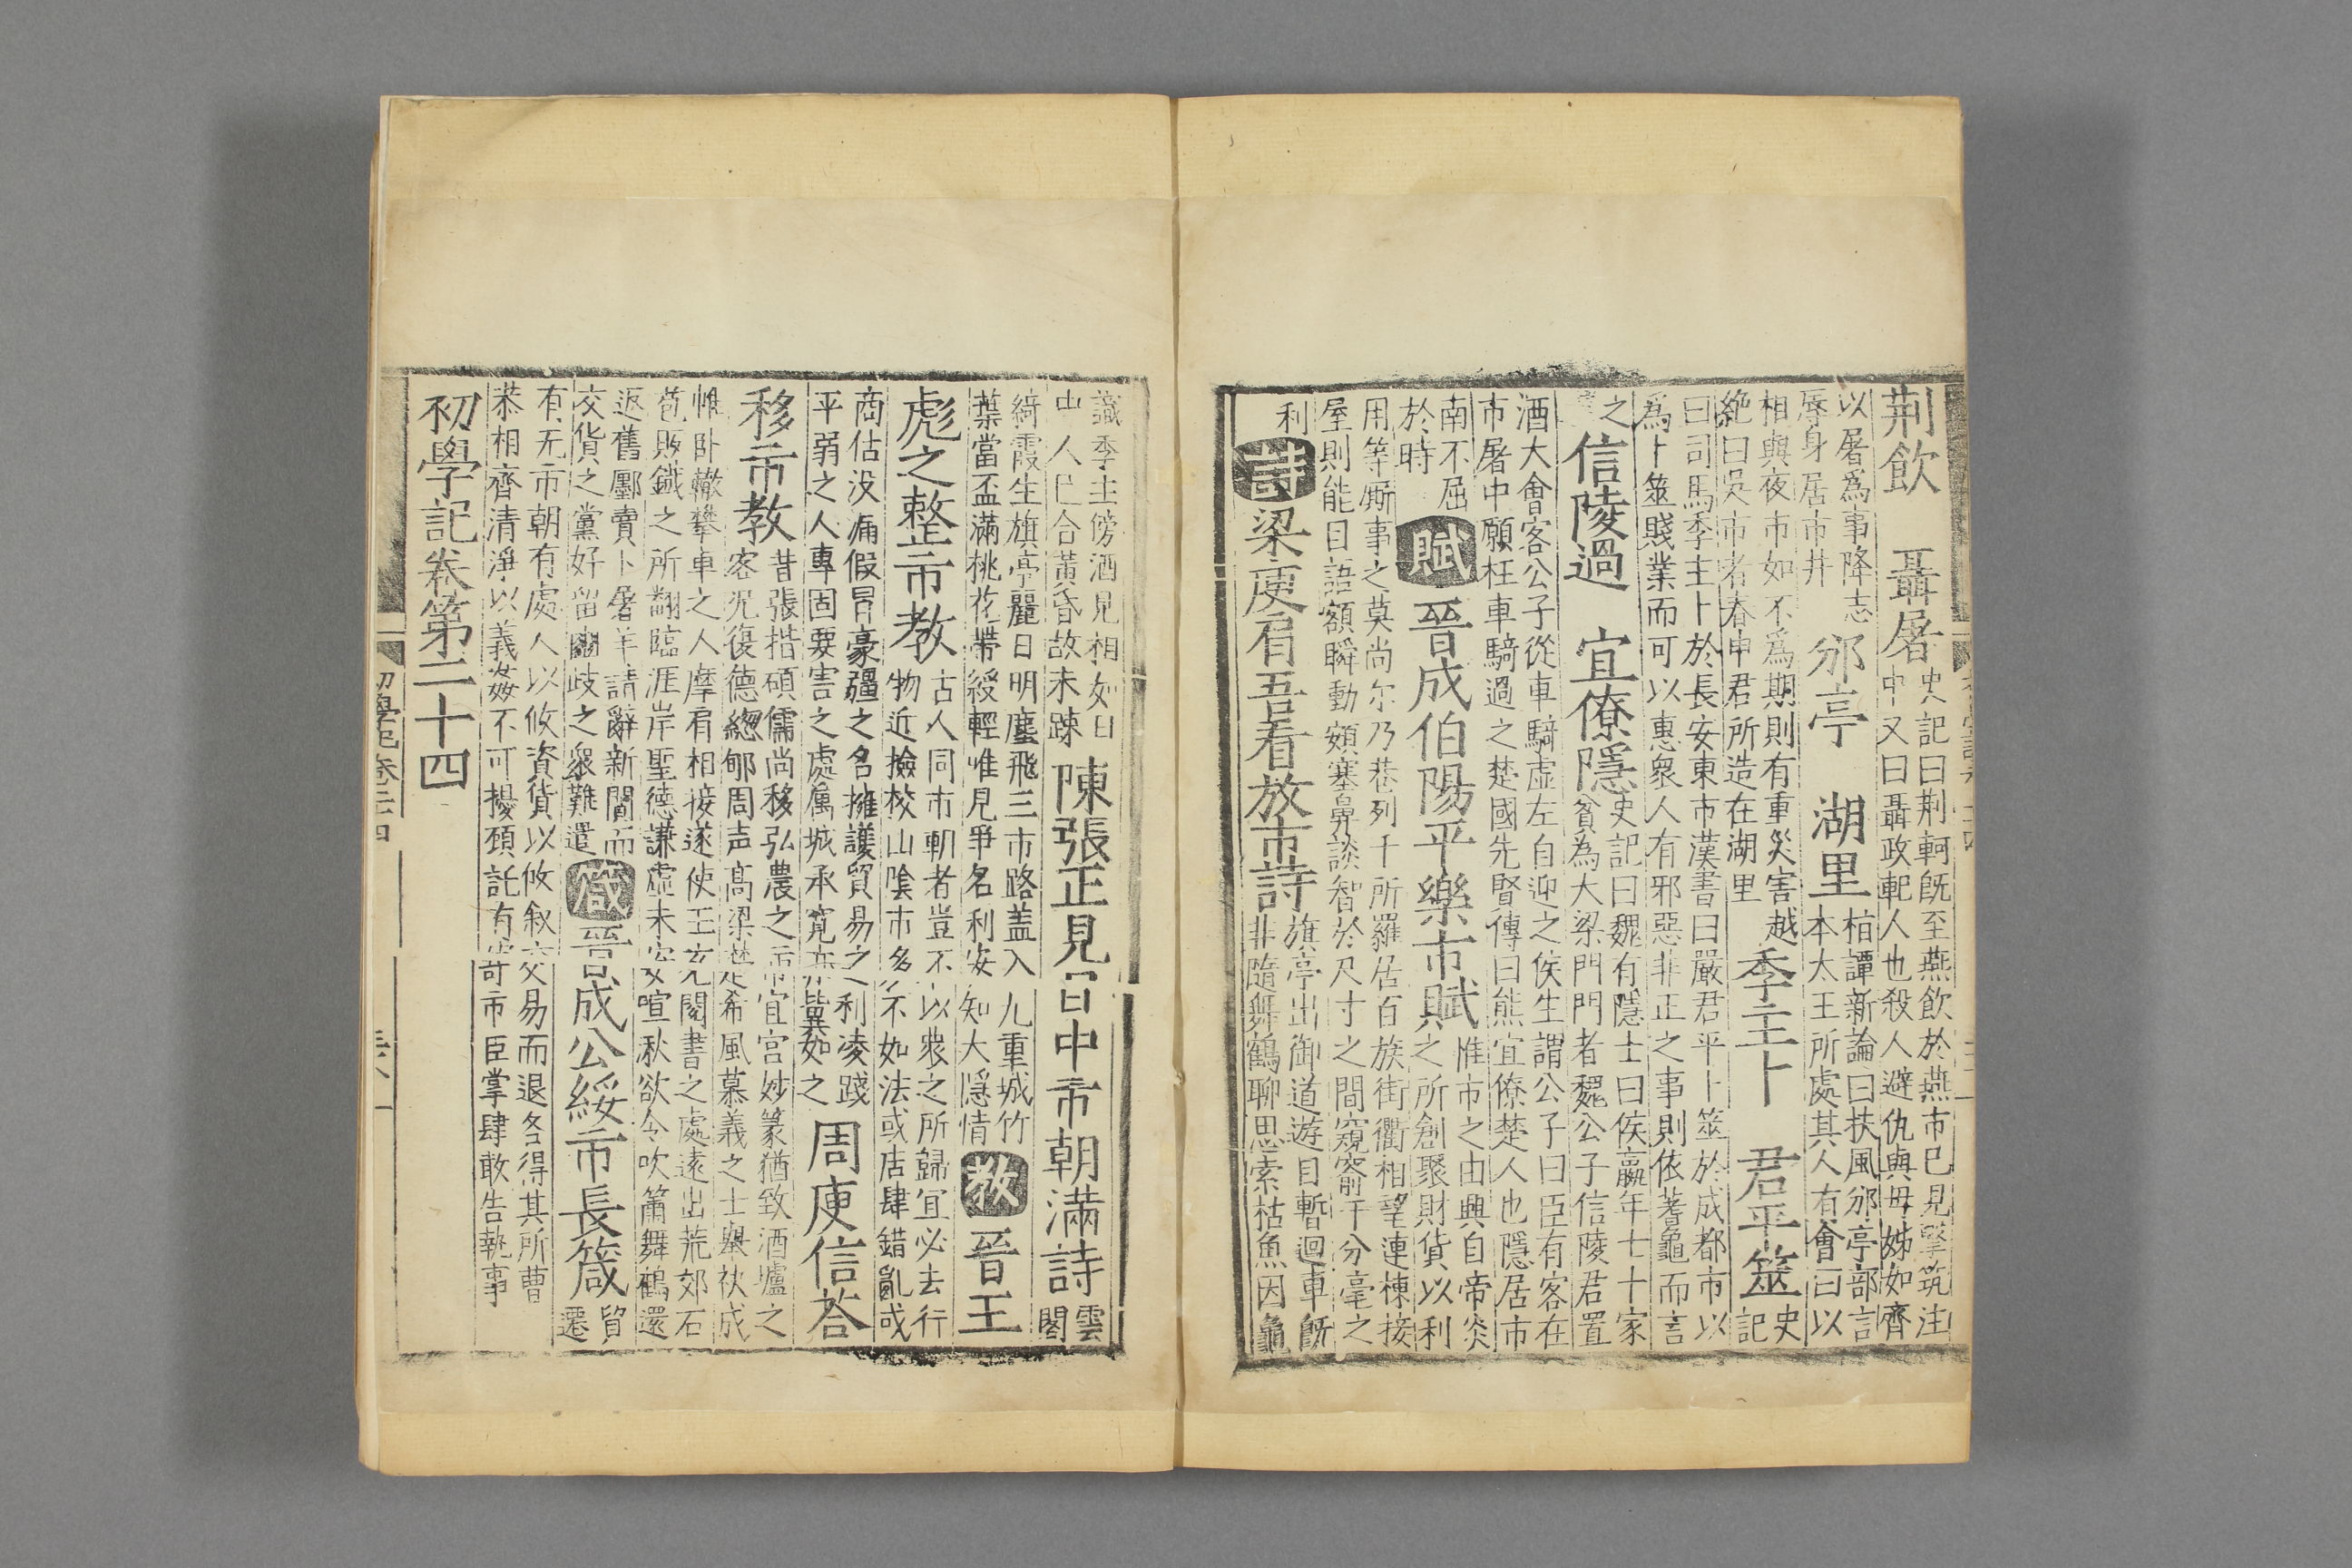 荆飲　聶屠史記曰荆軻既至燕飲於燕市已見擊筑注
中又曰聶政軹人也殺人避仇與母姊如齊
以屠爲事降志
辱身居市井　邠亭　湖里桓譚新論曰扶風邠亭部言
本太王所處其人有會曰以
相與夜市如不爲期則有重災害越
絶曰吳市者春申君所造在湖里　季主卜　君平筮史
記
曰司馬季主卜於長安東市漢書曰嚴君平卜筮於成都市以
爲卜筮賤業而可以惠衆人有邪惡非正之事則依蓍龜而言
之
信陵過　宜僚隱史記曰魏有隱士曰侯嬴年七十家
貧爲大梁門門者魏公子信陵君置
酒大會客公子從車騎虛左自迎之侯生謂公子曰臣有客在
市屠中願枉車騎過之楚國先賢傳曰熊宜僚楚人也隱居市
南不屈
於時　賦　晉成伯陽平樂市賦惟市之由興自帝炎
之所創聚財貨以利
用等廝事之莫尚尔乃巷列千所羅居百族街衢相望連棟接
屋則能目語額瞬動頞塞鼻談智於尺寸之間窺窬乎分毫之
利
詩　梁庾肩吾看放市詩旗亭出御道遊目暫迴車既
非隨舞鶴聊思索枯魚因龜
識季主傍酒見相如日
中人已合黃昏故未踈　陳張正見日中市朝滿詩雲
閣
綺霞生旗亭麗日明塵飛三市路盖入九重城竹
葉當盃滿桃花帶綬輕唯見爭名利安知大隱情　教　晉王
彪之整市教古人同市朝者豈不以衆之所歸宜必去行
物近撿校山陰市多不如法或店肆錯亂或
商估没漏假冒豪彊之名擁護貿易之利凌踐
平弱之人專固要害之處屬城承寛亦皆冀如之　周庾信荅
移市教昔張揩碩儒尚移弘農之市宜宫妙篆猶致酒壚之
客况復德總郇周声高梁楚希風慕義之士舉袂成
帷卧轍攀車之人摩肩相接遂使王充閱書之處遠出荒郊石
苞販鐵之所翻臨涯岸聖德謙虛未安喧秋欲令吹簫舞鶴還
返舊鄽賣卜屠羊請辭新閭而
交貨之黨好留豳歧之衆難遣　箴　晉成公綏市長箴貿
遷
有无市朝有處人以攸資貨以攸叙交易而退各得其所曹
恭相齊清淨以義姦不可擾頚託有司市臣掌肆敢告執事
初學記卷第二十四